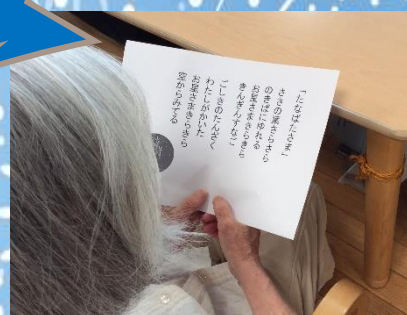 「たなばたさま」
ささの葉さらさら
のきばにゆれる
お星さまきらきら
きんぎんすなご
ごしきのたんざく
わたしがかいた
お星さまきらきら
空からみてる